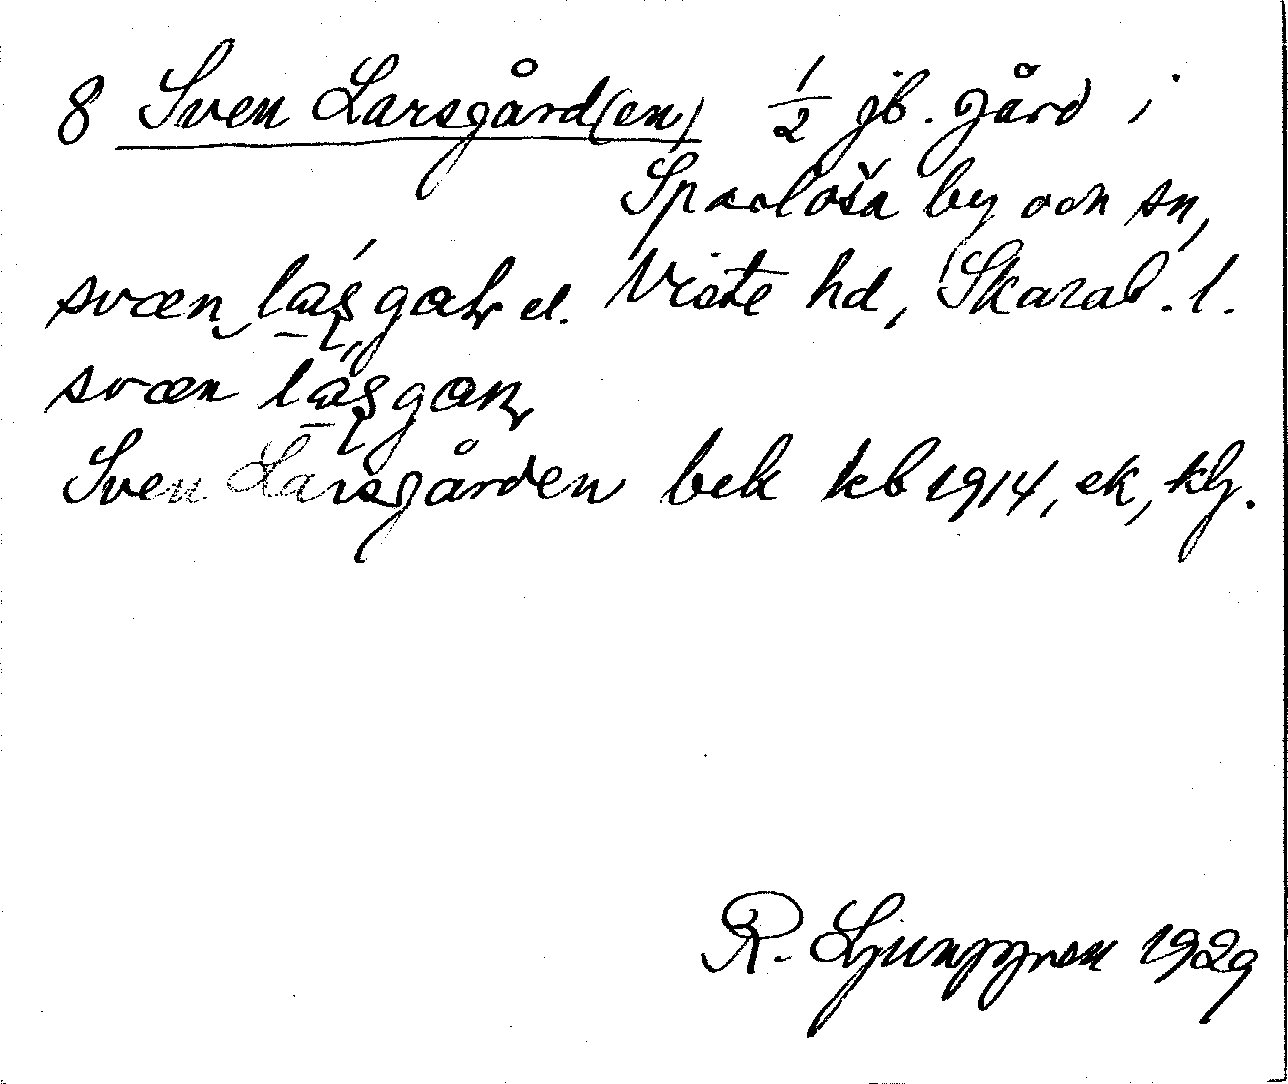 8 Sven Larsgård(en) 1/2 jb. gård i
Sparlösa by och sn,
svæn la̠s gaɫ el. Viste hd, Skarab. l.
svæn la̠s gaṇ
Sven Larsgården bek kb 1914, ek, kg.
R. Ljunggren 1929